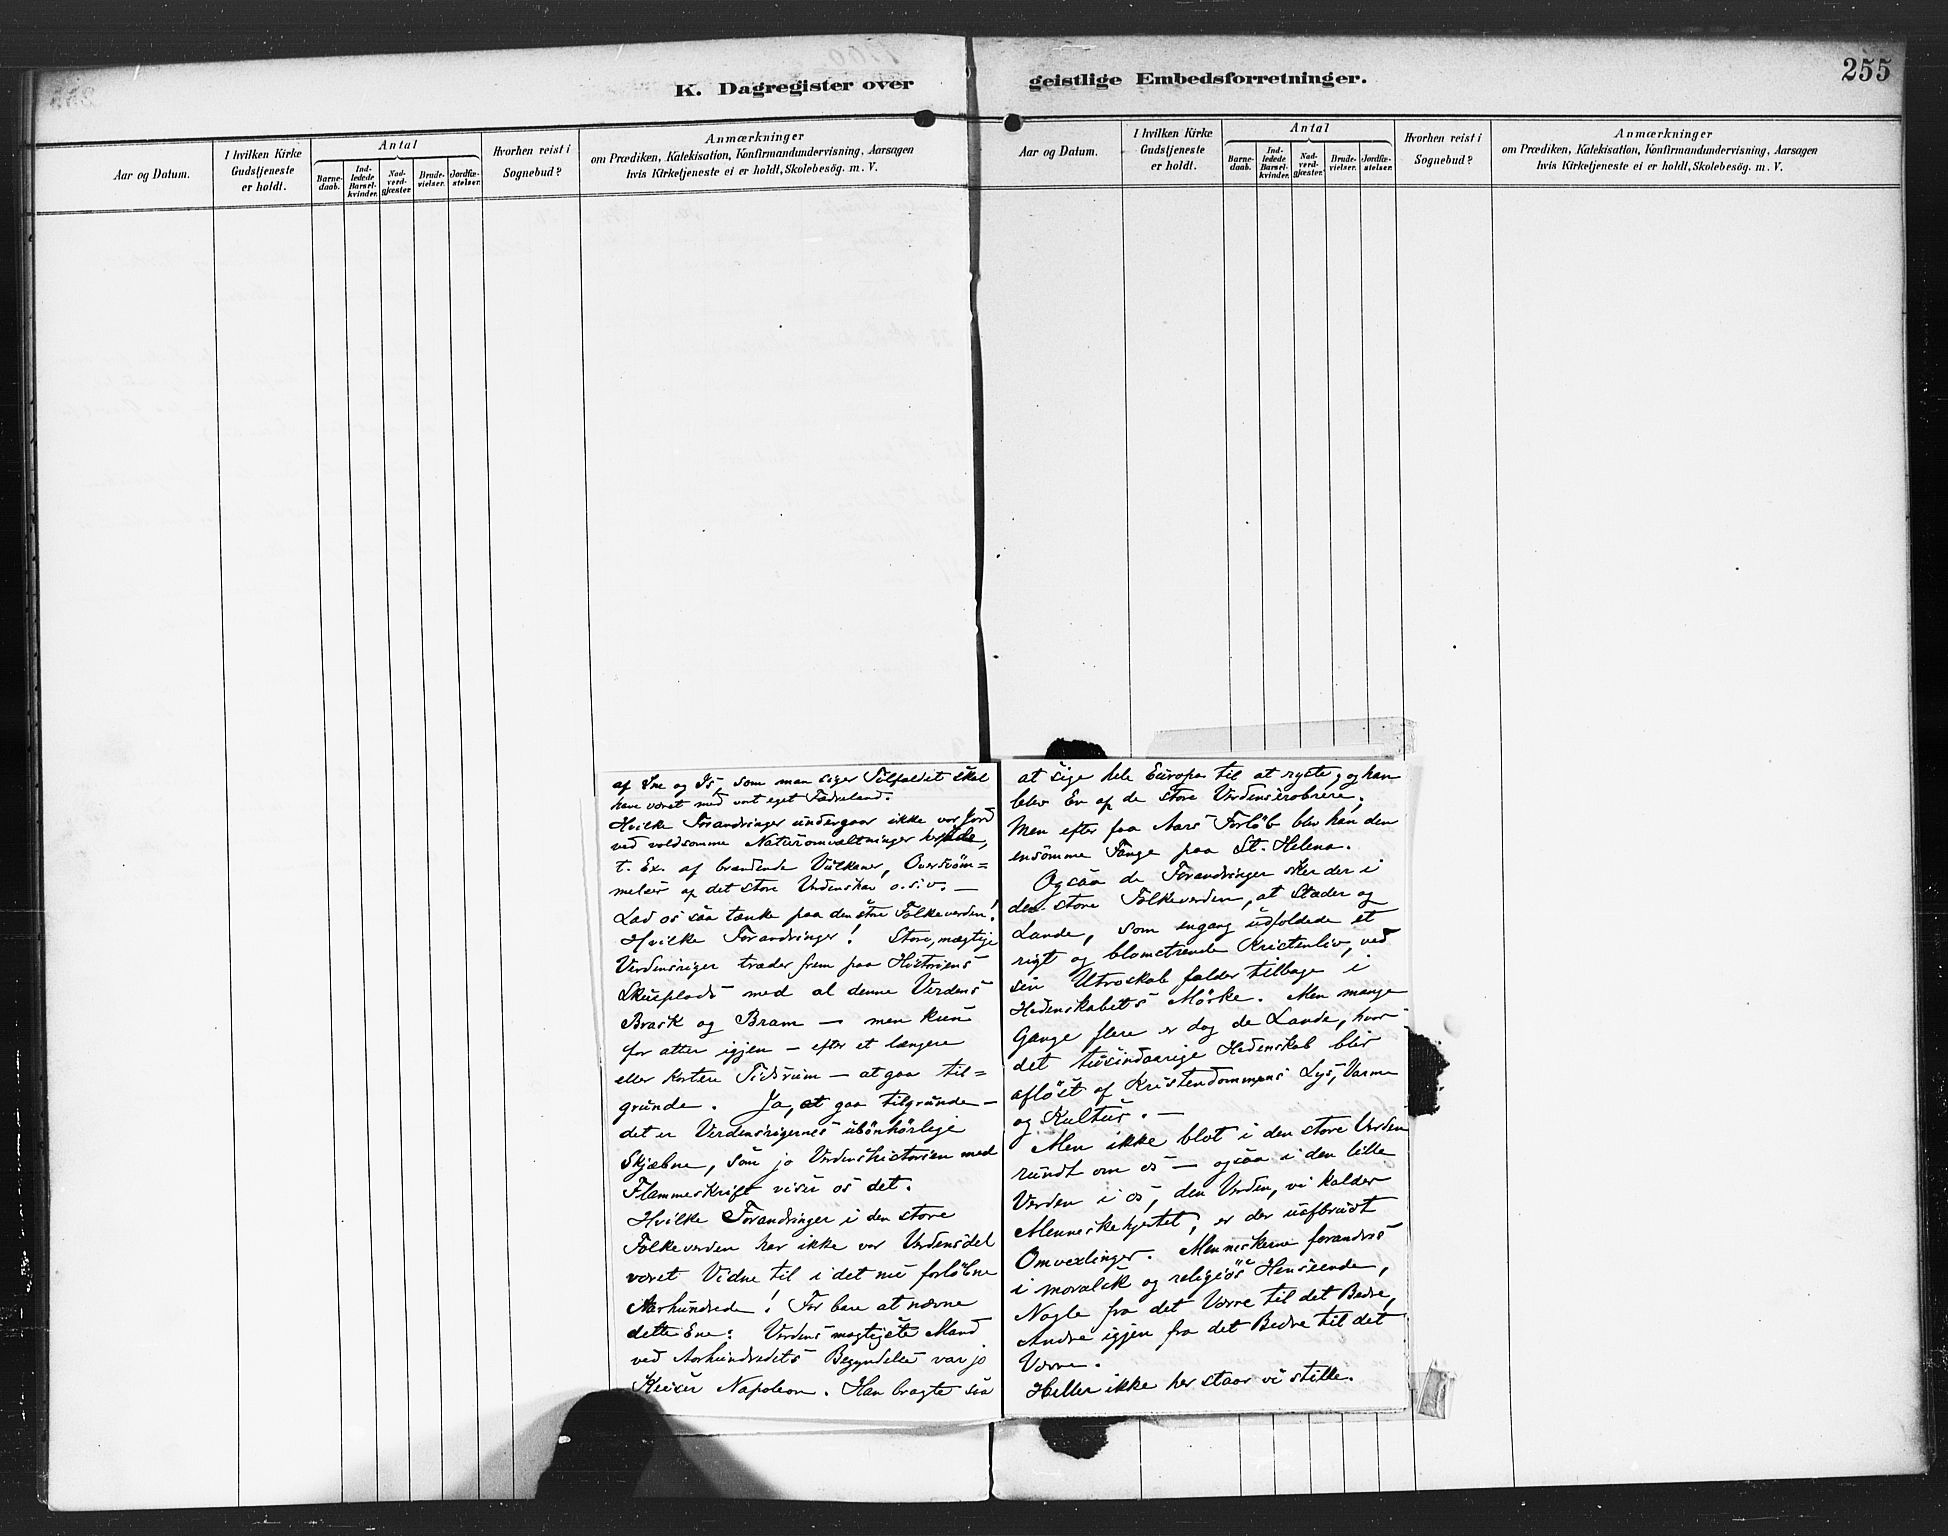 255
K. Dagregister over geistlige Embedsforretninger.
Aar og Datum.
I hvilken Kirke
Gudstjeneste
er holdt.
Antal
Barne-
daab.
Ind-
ledede
Barsel-
kvinder.
Nad-
verd-
gjæster
Brude-
vielser.
Jordfæ-
stelser.
Hvorhen reist i
Sognebud?
Anmærkninger
om Prædiken, Katekisation, Konfirmandundervisning, Aarsagen
hvis Kirketjeneste ei er holdt, Skolebesøg. m. V.
Aar og Datum.
I hvilken Kirke
Gudstjeneste
er holdt.
Antal
Barne-
daab.
Ind-
ledede
Barsel-
kvinder.
Nad-
verd-
gjæster.
Brude-
vielser.
Jordfæ-
stelser.
Hvorhen reist i
Sognebud?
Anmærkninger
om Prædiken, Katekisation, Konfirmandundervisning, Aarsagen
hvis Kirketjeneste ei er holdt, Skolebesög. m. V.
af Sne og Is, som man siger Tilfældet skal
have været med vort eget Fædreland.
Hvilke Forandringer undergaar ikke vor Jord
ved voldsomme Naturomvæltninger
t. Ex. af brændende Vulkaner, Oversvöm=
melser af det store Verdenshav o.s.v. —
Lad os saa tænke paa den store Folkeverden!
Hvilke Forandringer! Store, mægtige
Verdensriger træder frem paa Historiens
Skueplads med al denne Verdens
Brask og Bram — men kun
for atter igjen — efter et længere
eller kortere Tidsrum — at gaa til=
grunde. Ja, at gaa tilgrunde —
det er Verdensrigernes ubönhörlige
Skjæbne, som jo Verdenshistorien med
Flammeskrift viser os det.
Hvilke Forandringer i den store
Folkeverden har ikke vor Verdensdel
været Vidne til i det nu forlöbne
Aarhundrede! For bare at nævne
dette Ene: Verdens mægtigste Mand
ved Aarhundredets Begyndelse var jo
Keiser Napoleon. Han bragte saa
at sige hele Europa til at ryste, og han
blev En af de store Verdenserobrere.
Men efter faa Aars Forlöb blev han den
ensomme Fange paa St. Helena.
Ogsaa de Forandringer sker der i
den store Folkeverden, at Stæder og
Lande, som engang udfoldede et
rigt og blomstrende Kristenliv, ved
sin Utroskab falder tilbage i
Hedenskabets Mörke. Men mange
Gange flere er dog de Lande, hvor
det tusindaarige Hedenskab blir
aflöst af Kristendommens Lys, Varme
og Kultur. —
Men ikke blot i den store Verden
rundt om os — ogsaa i den lille
Verden i os, den Verden, vi kalder
Menneskehjertet, er der uafbrudt
Omvexlinger. Menneskene forandres
i moralsk og religiös Henseende,
Nogle fra det Værre til det Bedre,
Andre igjen fra det Bedre til det
Værre.
Heller ikke her staar vi stille.